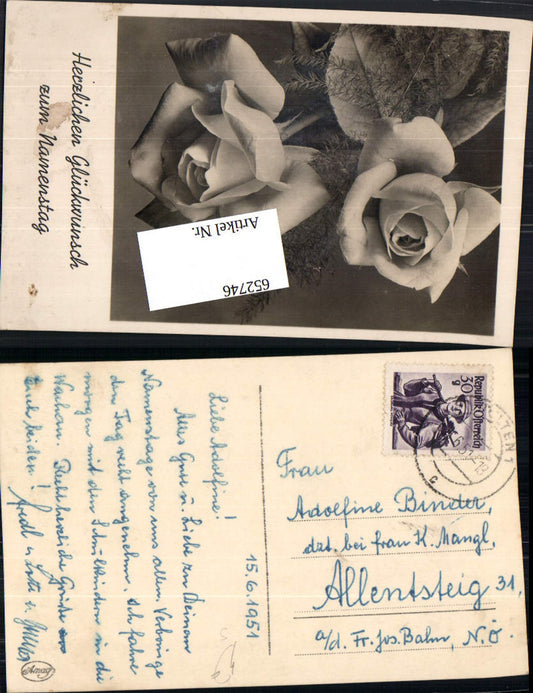 Herzlichen Glückwunsch
zum Namenstag
Artikel Nr.
652746
Liebe Adolfine!
Alles Gute u. Liebe zu Deinem
Namenstage von uns allen. Verbringe
den Tag recht angenehm. Ich fahre
morgen mit den Schulkindern in die
Wachau. Recht herzliche Grüße
Euch beiden!
15.6.1951
30 g
Republik Österreich
Frau
Adolfine Binder,
dzt. bei Frau K. Mangl,
Allentsteig 31,
a/d. Fr. Jos. Bahn, N.Ö.
Amag